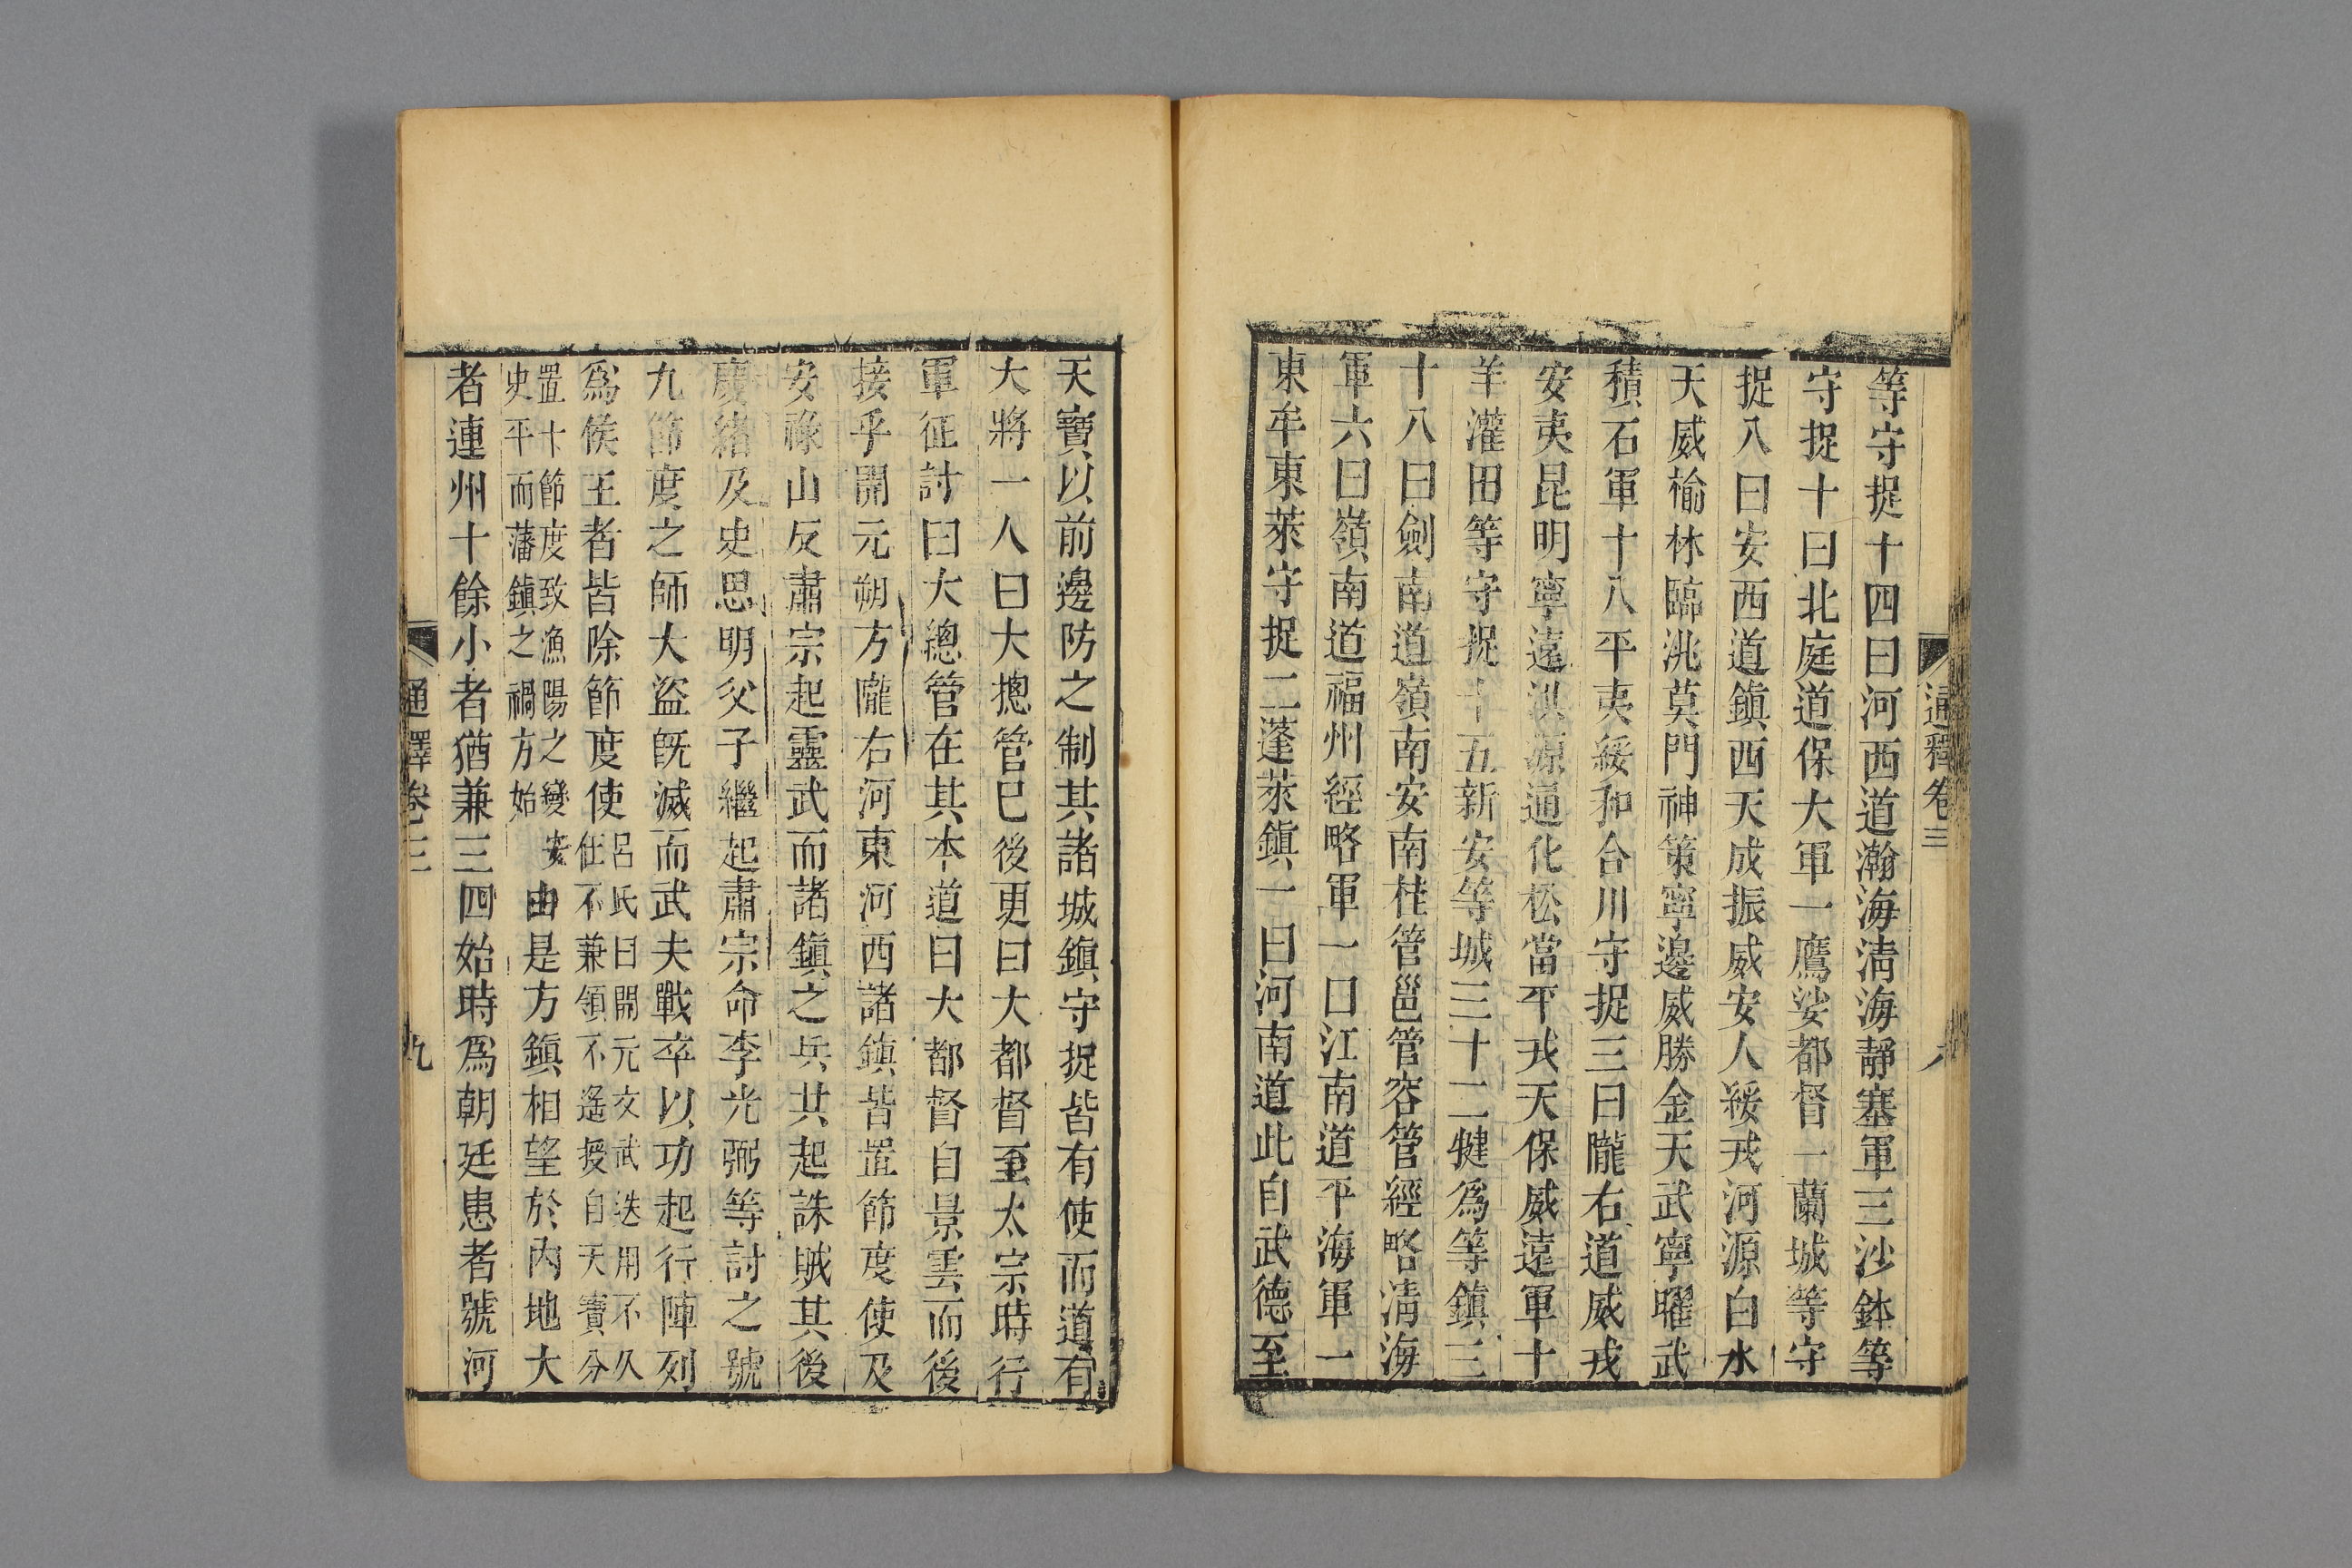 通釋卷三
等守捉十四曰河西道瀚海清海靜塞軍三沙鉢等
守捉十曰北庭道保大軍一鷹娑都督一蘭城等守
捉八曰安西道鎭西天成振威安人綏戎河源白水
天威榆林臨洮莫門神策寧邊威勝金天武寧曜武
積石軍十八平夷綏和合川守捉三曰隴右道威戎
安夷昆明寧遠洪源通化松當平戎天保威遠軍十
羊灌田等守捉十五新安等城三十二犍爲等鎭三
十八曰劍南道嶺南安南桂管邕管容管經略淸海
軍六曰嶺南道福州經略軍一曰江南道平海軍一
東牟東萊守捉二蓬萊鎭一曰河南道此自武德至
天寶以前邊防之制其諸城鎭守捉皆有使而道有
大將一人曰大摠管已後更曰大都督至太宗時行
軍征討曰大總管在其本道曰大都督自景雲而後
接乎開元朔方隴右河東河西諸鎮皆置節度使及
安祿山反肅宗起靈武而諸鎮之兵共起誅賊其後
慶緒及史思明父子繼起肅宗命李光弼等討之號
九節度之師大盜旣滅而武夫戰卒以功起行陣列
爲侯王者皆除節度使呂氏曰開元文武迭用不久
任不兼領不遙授自天寶分
置十節度致漁陽之變安
史平而藩鎮之禍方始由是方鎭相望於內地大
者連州十餘小者猶兼三四始時爲朝廷患者號河
通釋卷三
九